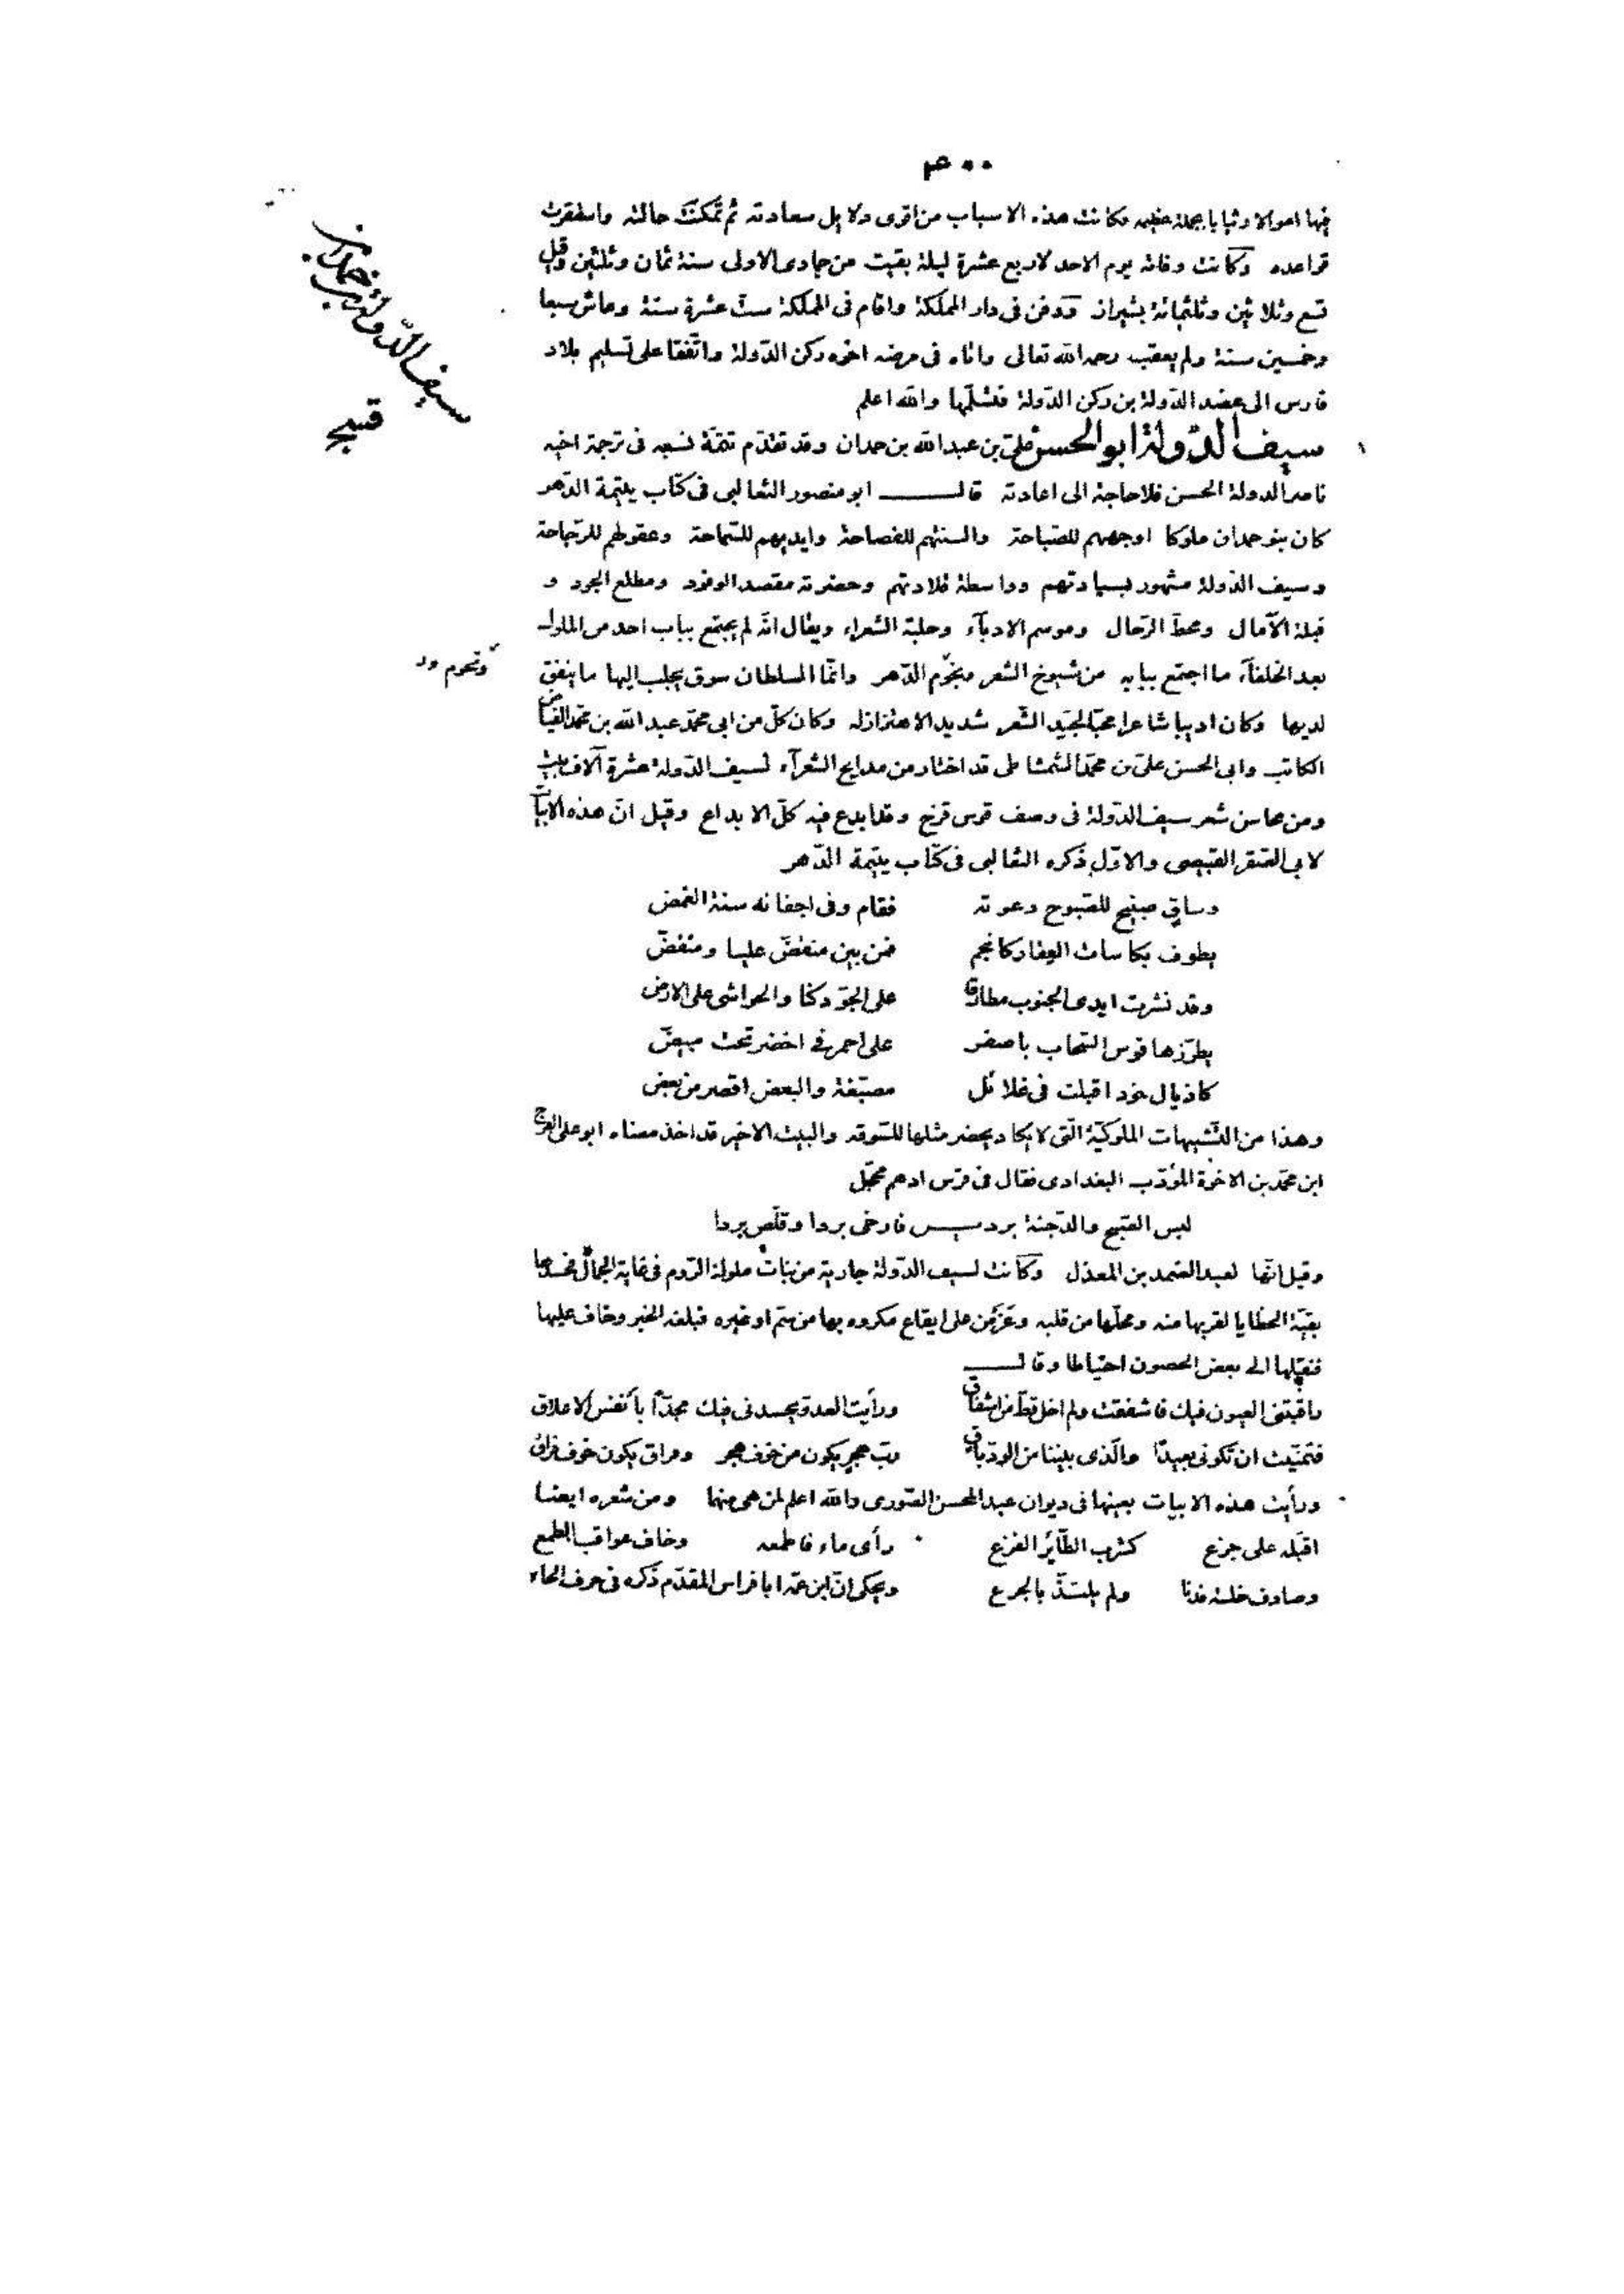 ٤٠٠
فيها اموالا وثيابا بجملة عظيمه فكانت هذه الاسباب من اقوى دلايل سعادته ثم تمكنت حالته واستقرت
قواعده وكانت وفاته يوم الاحد لاربع عشرة ليلة بقيت من جمادى الاولى سنة ثمان وثلثين وقيل
تسع وثلاثين وثلثمائة بشيراز ودفن فى دار المملكة واقام فى المملكة ست عشرة سنة وعاش سبعا
وخمسين سنة ولم يعقب رحمه الله تعالى واتاه فى مرضه اخوه ركن الدّولة واتّفقا على تسليم بلاد
فارس الى عضد الدّولة بن ركن الدّولة فتسلّمها والله اعلم
سيف الدّولة ابو الحسن علىّ بن عبد الله بن حمدان وقد تقدّم تتمّة نسبه فى ترجمة اخيه
ناصر الدولة الحسن فلا حاجة الى اعادته قال ابو منصور الثعالبى فى كتاب يتيمة الدّهر
كان بنو حمدان ملوكا اوجههم للصّباحة والسنتهم للفصاحة وايديهم للسّماحة وعقولهم للرّجاحة
وسيف الدّولة مشهور بسيادتهم وواسطة قلادتهم وحضرته مقصد الوفود ومطلع الجود و
قبلة الآمال ومحطّ الرّحال وموسم الادبآء وحلبة الشعراء ويقال انّه لم يجتمع بباب احد من الملوك
بعد الخلفآء ما اجتمع ببابه من شيوخ الشعر ونجوم الدّهر وانّما السلطان سوق يجلب اليها ما ينفق
لديها وكان اديبا شاعرا محبّا لجيّد الشّعر شديد الاهتزاز له وكان كلّ من ابى محمّد عبد الله بن محمّد الفيّاض
الكاتب وابى الحسن علىّ بن محمّد الشمشاطى قد اختار من مدايح الشعرآء لسيف الدّولة عشرة آلاف بيت
ومن محاسن شعر سيف الدّولة فى وصف قوس قزح وقد ابدع فيه كلّ الابداع وقيل انّ هذه الابيات
لابى الصّقر القبيصى والاوّل ذكره الثعالبى فى كتاب يتيمة الدّهر
وساقٍ صبيح للصّبوح دعوته فقام وفى اجفانه سنة الغمض
يطوف بكاسات العقار كانجم فمن بين منقضّ علينا ومنفضّ
وقد نشرت ايدى الجنوب مطارفا على الجوّ دكنا والحواشى على الارض
يطرّزها قوس السّحاب باصفر على احمر فى اخضر تحت مبيضّ
كاذيال خود اقبلت فى غلائل مصبّغة والبعض اقصر من بعض
وهذا من التّشبيهات الملوكيّة الّتى لا يكاد يحضر مثلها للسّوقه والبيت الاخير قد اخذ معناه ابو على الفرج
ابن محمّد بن الاخوة المؤدّب البغدادى فقال فى فرس ادهم محجّل
لبس الصّبح والدّجنة بردين فارخى بردا وقلّص بردا
وقيل انّها لعبد الصّمد بن المعذل وكانت لسيف الدّولة جارية من بنات ملوك الرّوم فى غاية الجمال فحسدها
بقيّة الحظايا لقربها منه ومحلّها من قلبه وعزمن على ايقاع مكروه بها من سمّ او غيره فبلغه الخبر وخاف عليها
فنقلها الى بعض الحصون احتياطا وقال
راقبتنى العيون فيك فاشفقت ولم اخل قطّ من اشفاق ورأيت العدوّ يحسدنى فيك مجدّا بأنفس الاعلاق
فتمنّيت ان تكونى بعيدًا والّذى بيننا من الودّ باق ربّ هجرٍ يكون من خوف هجر وفراق يكون خوف فراق
ورأيت هذه الابيات بعينها فى ديوان عبد المحسن الصّورى والله اعلم لمن هى منهما ومن شعره ايضا
اقبّله على جزع كشرب الطّائر الفزع رأى ماء فاطمعه وخاف عواقب الطمع
وصادف خلسة فدنا ولم يلتذّ بالجرع ويحكى انّ ابن عمّه ابا فراس المقدّم ذكره فى حرف الحاء
سيف الدّولة بن حمدان
ونجوم